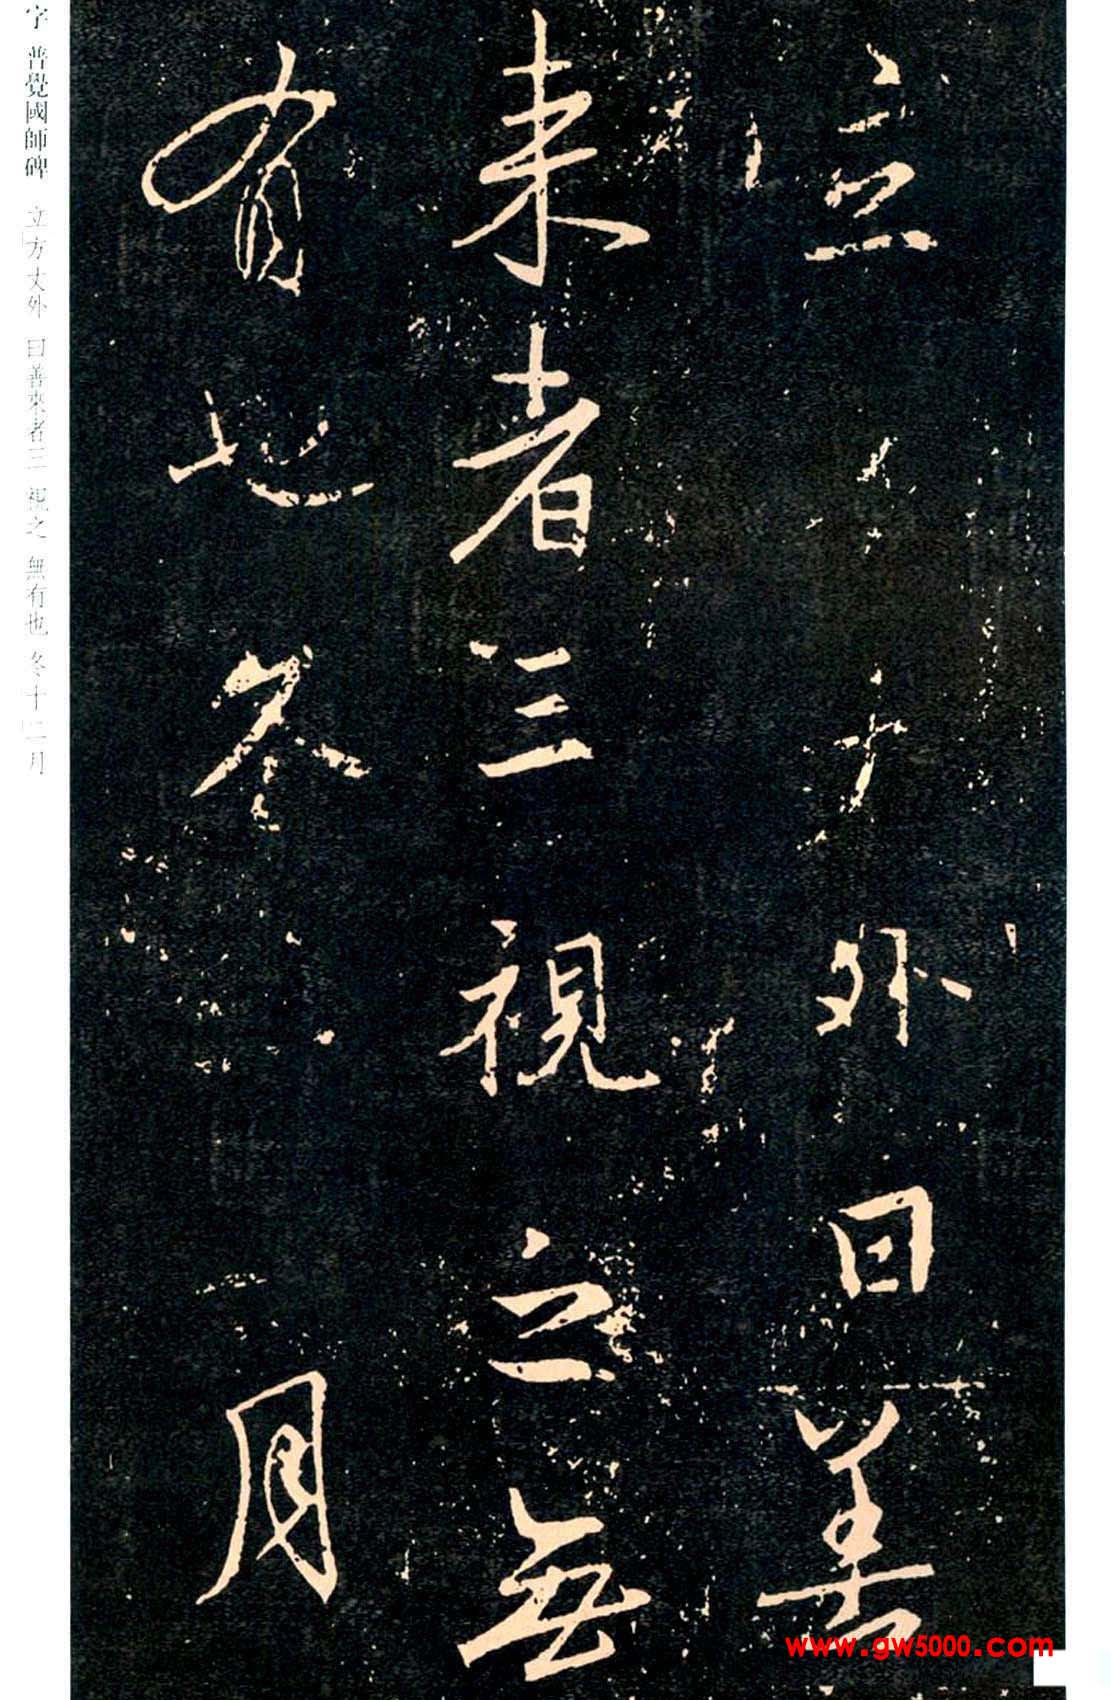 立　　外曰善
来者三視之無
有也冬　　月
字 普覺國師碑 立方丈外 曰善來者三 視之 無有也 冬十二月
www.gw5000.com